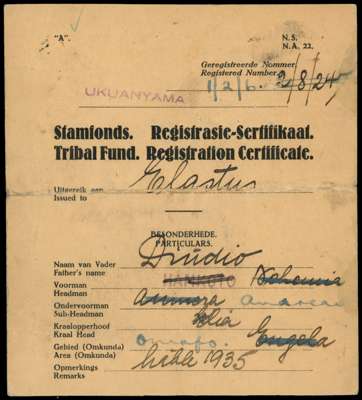 "A"
N.S.
N.A. 22.
Geregistreerde Nommer
Registered Number
1/2/6. 2/8/24
UKUANYAMA
Stamfonds. Registrasie-Sertifikaat.
Tribal Fund. Registration Certificate.
Uitgereik aan
Issued to Elastus
BESONDERHEDE.
PARTICULARS.
Naam van Vader
Father's name
Voorman HAMKOTO
Headman
Ondervoorman
Sub-Headman
Kraalopperhoof
Kraal Head Elia
Gebied (Omkunda) Engela
Area (Omkunda)
Opmerkings 1935
Remarks